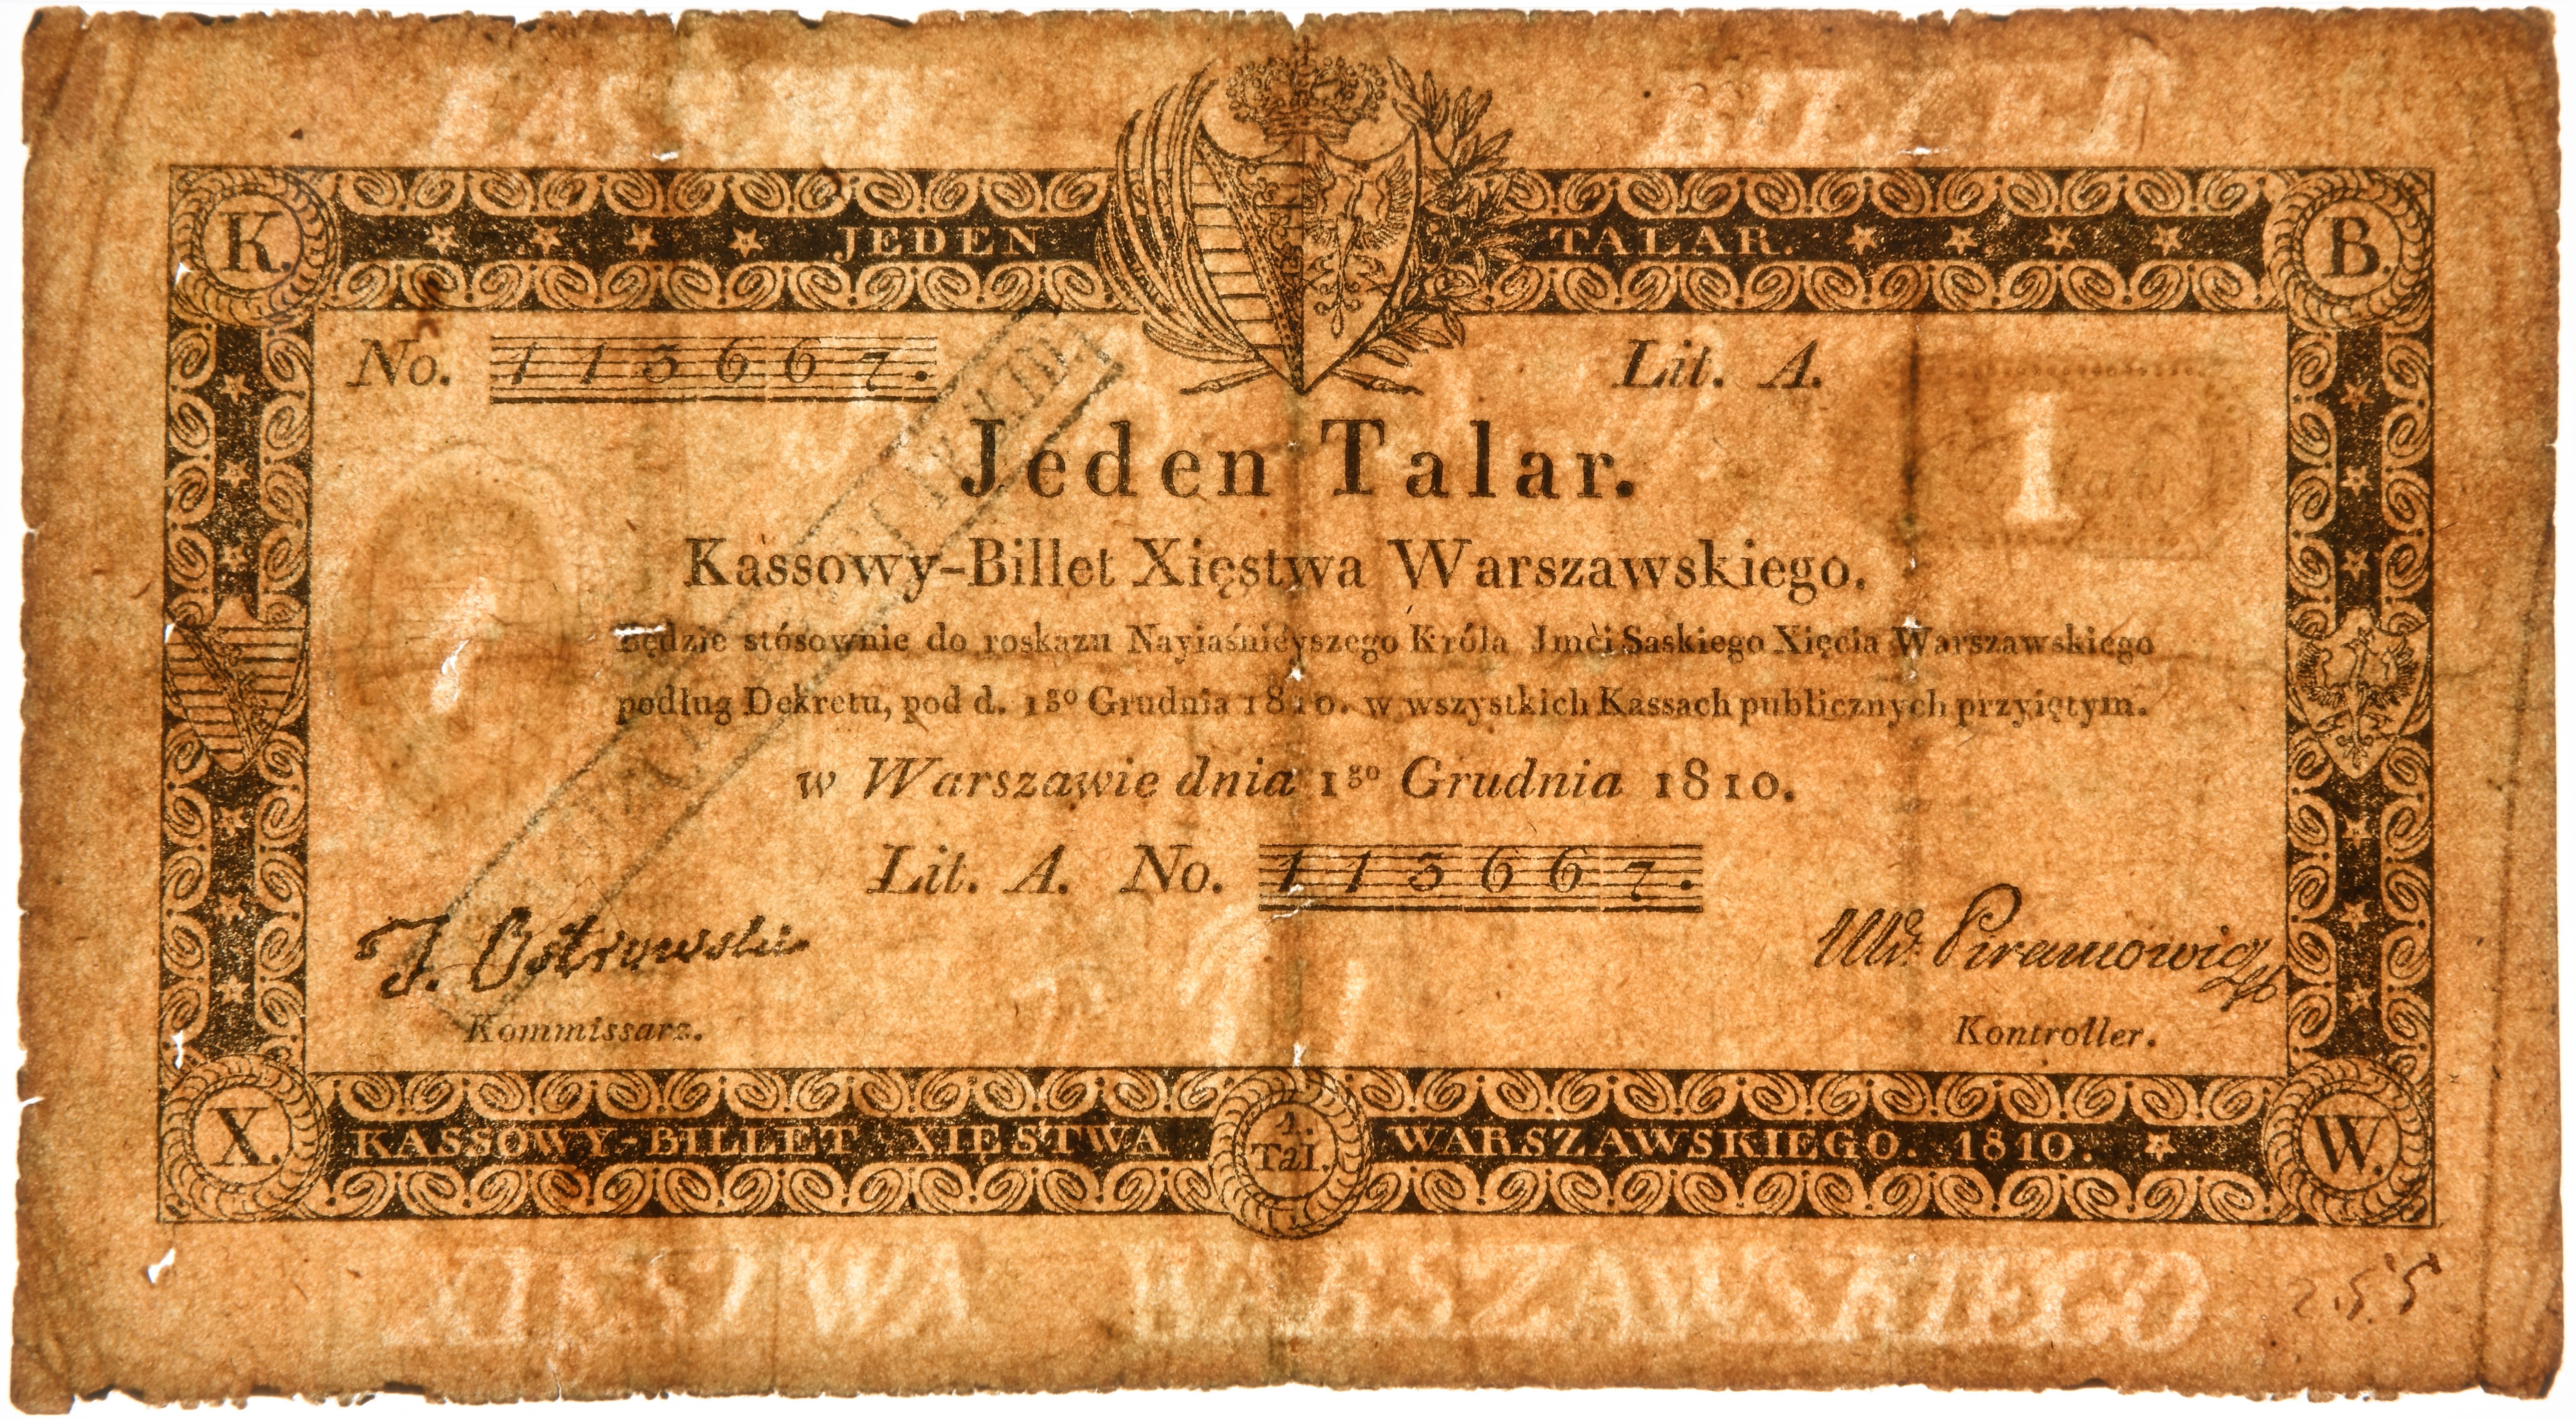 BILLET
K. JEDEN TALAR. B.
No. 113667. Lit. A.
1
Jeden Talar.
Kassowy-Billet Xięstwa Warszawskiego.
Będzie stósownie do roskazu Nayiaśnieyszego Króla Jmći Saskiego Xięcia Warszawskiego
podług Dekretu, pod d. 1go Grudnia 1810. w wszystkich Kassach publicznych przyiętym.
1
w Warszawie dnia 1go Grudnia 1810.
Lit. A. No. 113667.
J. Ostrowski
Piramowicz
Kommissarz. Kontroller.
X. KASSOWY-BILLET XIESTWA 1. Tal. WARSZAWSKIEGO. 1810. W.
XIESTWA WARSZAWSKIEGO
255